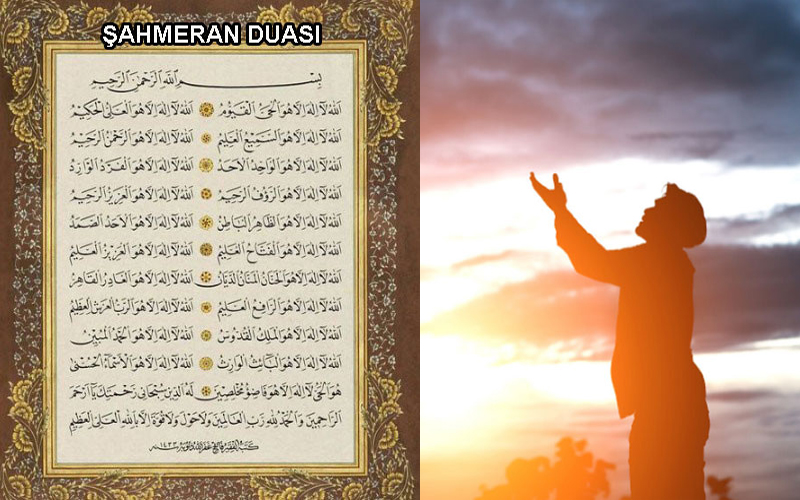 ŞAHMERAN DUASI
بِسْمِ اللهِ الرَّحْمٰنِ الرَّحِيمِ
اَللهُ لَا اِلٰهَ اِلَّا هُوَ الْحَيُّ الْقَيُّومُ اَللهُ لَا اِلٰهَ اِلَّا هُوَ الْعَلِيُّ الْحَكِيمُ
اَللهُ لَا اِلٰهَ اِلَّا هُوَ السَّمِيعُ الْعَلِيمُ اَللهُ لَا اِلٰهَ اِلَّا هُوَ الرَّحْمٰنُ الرَّحِيمُ
اَللهُ لَا اِلٰهَ اِلَّا هُوَ الْوَاحِدُ الْاَحَدُ اَللهُ لَا اِلٰهَ اِلَّا هُوَ الْفَرْدُ
اَللهُ لَا اِلٰهَ اِلَّا هُوَ الرَّؤُفُ الرَّحِيمُ اَللهُ لَا اِلٰهَ اِلَّا هُوَ الْعَزِيزُ الرَّحِيمُ
اَللهُ لَا اِلٰهَ اِلَّا هُوَ الظَّاهِرُ الْبَاطِنُ اَللهُ لَا اِلٰهَ اِلَّا هُوَ الْاَحَدُ الصَّمَدُ
اَللهُ لَا اِلٰهَ اِلَّا هُوَ الْفَتَّاحُ الْعَلِيمُ اَللهُ لَا اِلٰهَ اِلَّا هُوَ الْعَزِيزُ الْعَلِيمُ
اَللهُ لَا اِلٰهَ اِلَّا هُوَ الْحَنَّانُ الْمَنَّانُ الدَّيَّانُ اَللهُ لَا اِلٰهَ اِلَّا هُوَ الْقَاهِرُ
اَللهُ لَا اِلٰهَ اِلَّا هُوَ الرَّافِعُ الْعَلِيمُ اَللهُ لَا اِلٰهَ اِلَّا هُوَ الرَّبُّ الْعَرْشِ الْعَظِيمُ
اَللهُ لَا اِلٰهَ اِلَّا هُوَ الْمَلِكُ الْقُدُّوسُ اَللهُ لَا اِلٰهَ اِلَّا هُوَ الْمُبِينُ
اَللهُ لَا اِلٰهَ اِلَّا هُوَ الْبَاعِثُ الْوَارِثُ اَللهُ لَا اِلٰهَ اِلَّا هُوَ الْاَسْمَاءُ الْحُسْنٰى
هُوَ الْحَيُّ لَا اِلٰهَ اِلَّا هُوَ مُخْلِصِينَ لَهُ الدِّينَ سُبْحَانَ بِرَحْمَتِكَ يَا اَرْحَمَ
الرَّاحِمِينَ وَالْحَمْدُ لِلهِ رَبِّ الْعَالَمِينَ وَلَا حَوْلَ وَلَا قُوَّةَ اِلَّا بِاللهِ الْعَلِيِّ الْعَظِيمِ